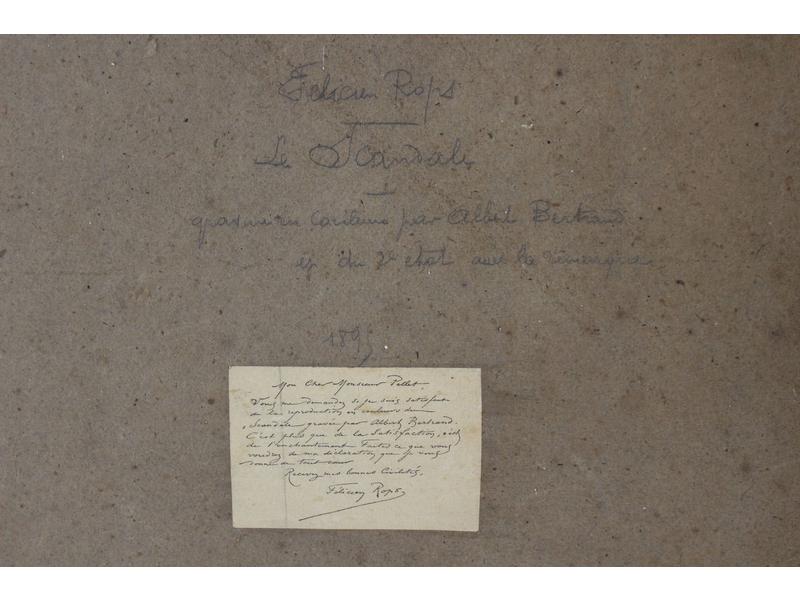 Félicien Rops
Le Scandale
gravure en couleurs par Albert Bertrand
ep du 2e etat avec la remarque
1895
Mon Cher Monsieur Pellet.
Vous me demandez si je suis satisfait
de la reproduction en couleurs du
Scandale gravée par Albert Bertrand.
C'est plus que de la Satisfaction, c'est
de l'enchantement Faites ce que vous
voudrez de ma déclaration, que je vous
donne de tout cœur
Recevez mes bonnes Civilités,
Félicien Rops